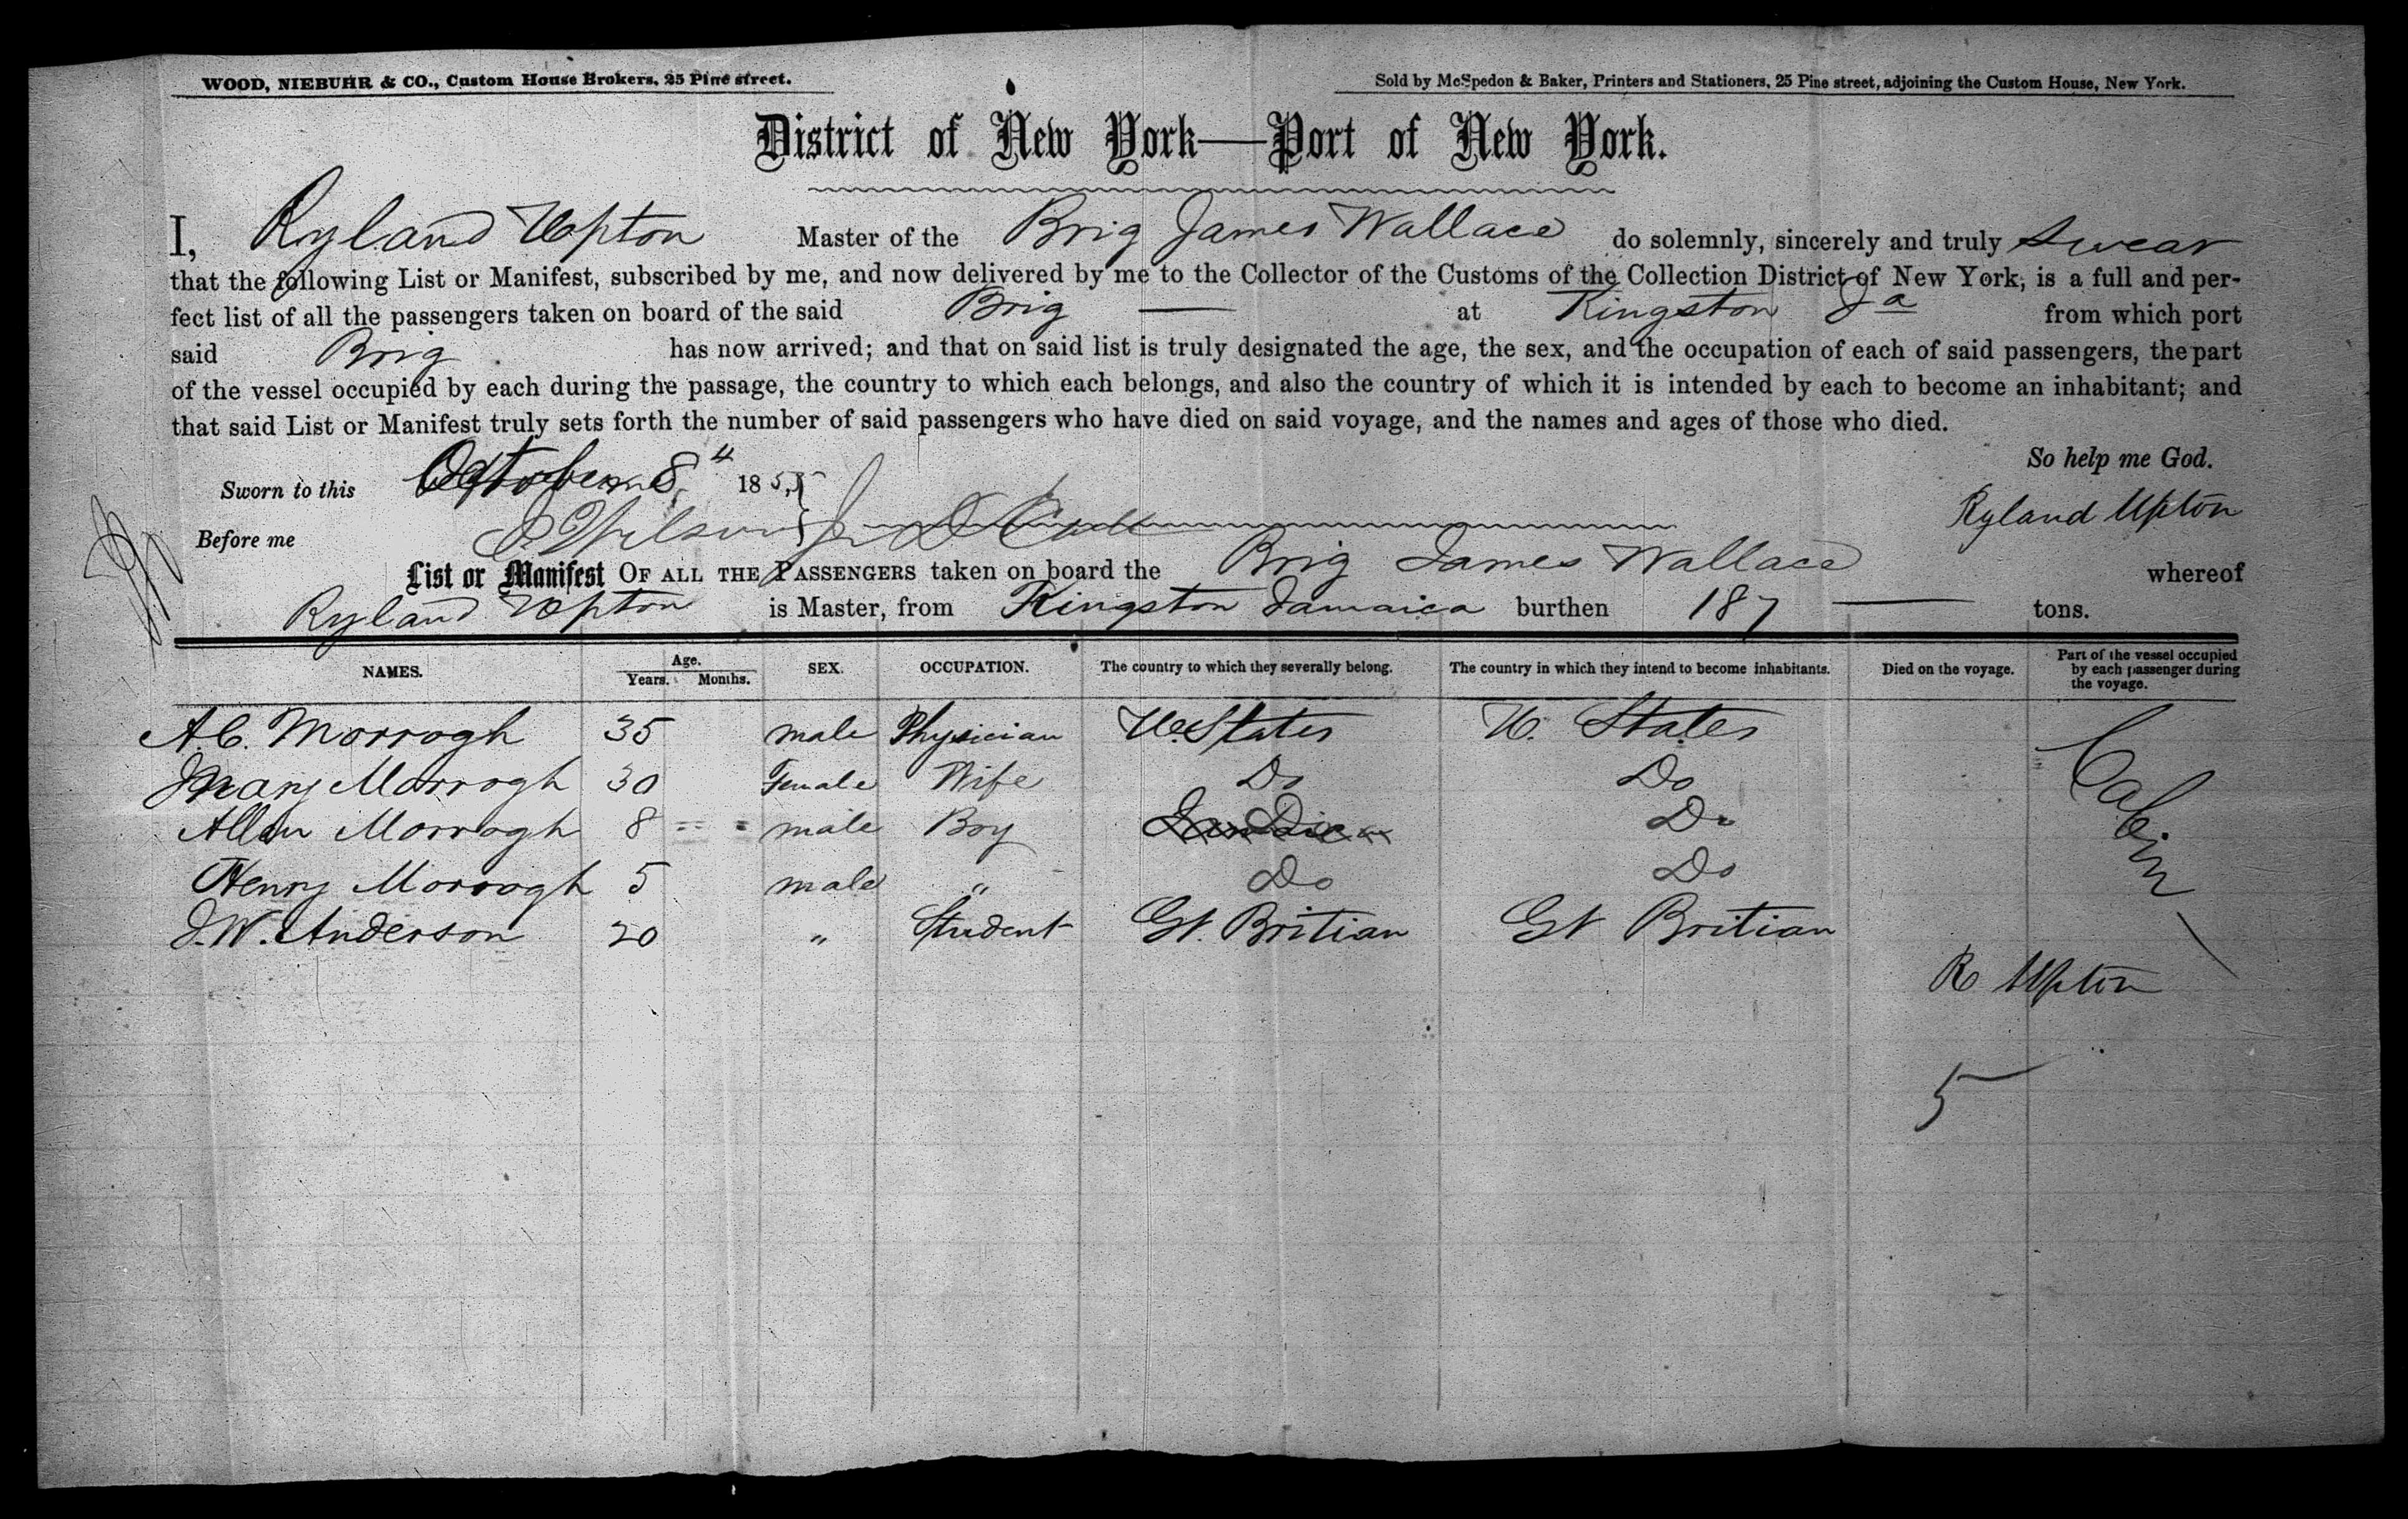 WOOD, NIEBUHR & CO., Custom House Brokers, 25 Pine street.
Sold by McSpedon & Baker, Printers and Stationers, 25 Pine street, adjoining the Custom House, New York.
District of New York—Port of New York.
I, Ryland Upton Master of the Brig James Wallace do solemnly, sincerely and truly swear
that the following List or Manifest, subscribed by me, and now delivered by me to the Collector of the Customs of the Collection District of New York, is a full and per-
fect list of all the passengers taken on board of the said Brig — at Kingston Ja from which port
said Brig has now arrived; and that on said list is truly designated the age, the sex, and the occupation of each of said passengers, the part
of the vessel occupied by each during the passage, the country to which each belongs, and also the country of which it is intended by each to become an inhabitant; and
that said List or Manifest truly sets forth the number of said passengers who have died on said voyage, and the names and ages of those who died.
So help me God.
Sworn to this October 8 1855
Ryland Upton
Before me
List or Manifest OF ALL THE PASSENGERS taken on board the Brig James Wallace whereof
Ryland Upton is Master, from Kingston Jamaica burthen 187 — tons.
NAMES. Age. Years. Months. SEX. OCCUPATION. The country to which they severally belong. The country in which they intend to become inhabitants. Died on the voyage. Part of the vessel occupied by each passenger during the voyage.
A.C. Morrogh 35 male Physician U. States U. States
Mary Morrogh 30 Female Wife Do Do
Allen Morrogh 8 male Boy Do
Henry Morrogh 5 male " Do Do
J.W. Anderson 20 " Student Gt. Britian Gt Britian
Cabin
R Upton
5